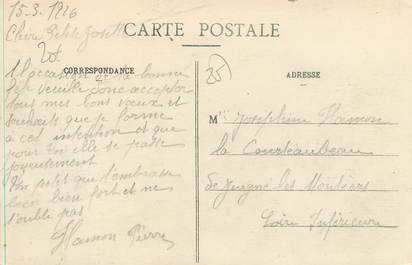 15-3-1916
CARTE POSTALE
Chère Petite
CORRESPONDANCE
A l'occasion de ta bonne
fête veuille donc accepter
tous mes bons vœux et
souhaits que je forme
à cet intention et que
pour elle se passe
joyeusement
Un petit qui t'embrasse
bien bien fort et ne
t'oublie pas
Hamon Pierre
25
ADRESSE
Mlle Joséphine Hamon
la
les Moutiers
Loire Inférieure